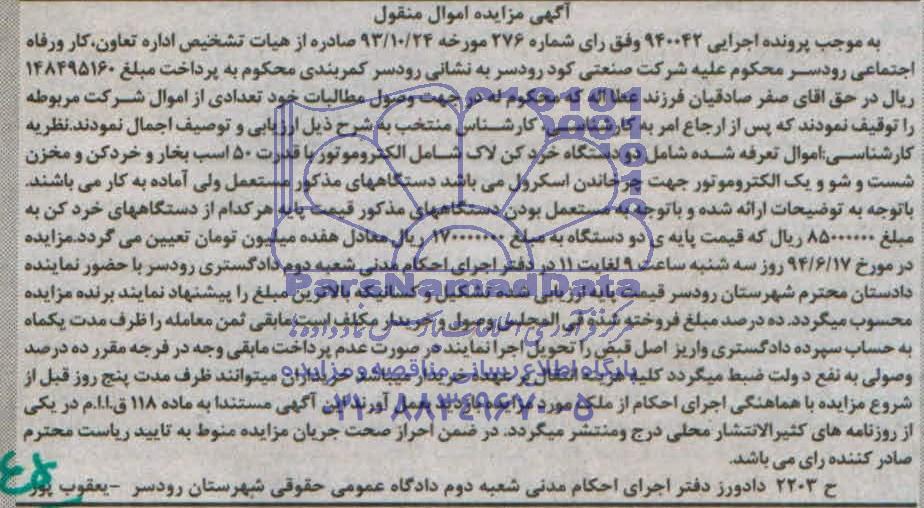 آگهی مزایده اموال منقول
به موجب پرونده اجرایی ۹۴۰۰۴۲ وفق رای شماره ۲۷۶ مورخه ۹۳/۱۰/۲۴ صادره از هیات تشخیص اداره تعاون،کار ورفاه
اجتماعی رودسر محکوم علیه شرکت صنعتی کود رودسر به نشانی رودسر کمربندی محکوم به پرداخت مبلغ ۱۴۸۴۹۵۱۶۰
ریال در حق اقای صفر صادقیان فرزند عطااله که محکوم له در جهت وصول مطالبات خود تعدادی از اموال شرکت مربوطه
را توقیف نمودند که پس از ارجاع امر به کارشناسی، کارشناس منتخب به شرح ذیل ارزیابی و توصیف اجمال نمودند.نظریه
کارشناسی:اموال تعرفه شده شامل دو دستگاه خرد کن لاک شامل الکتروموتور با قدرت ۵۰ اسب بخار و خردکن و مخزن
شست و شو و یک الکتروموتور جهت چرخاندن اسکرول می باشد دستگاههای مذکور مستعمل ولی آماده به کار می باشند.
باتوجه به توضیحات ارائه شده و باتوجه به مستعمل بودن دستگاههای مذکور قیمت پایه هرکدام از دستگاههای خرد کن به
مبلغ ۸۵۰۰۰۰۰۰ ریال که قیمت پایه ی دو دستگاه به مبلغ ۱۷۰۰۰۰۰۰۰ ریال معادل هفده میلیون تومان تعیین می گردد.مزایده
در مورخ ۹۴/۶/۱۷ روز سه شنبه ساعت ۹ لغایت ۱۱ در دفتر اجرای احکام مدنی شعبه دوم دادگستری رودسر با حضور نماینده
دادستان محترم شهرستان رودسر قیمت پایه ارزیابی شده تشکیل و کسانیکه بالاترین مبلغ را پیشنهاد نمایند برنده مزایده
محسوب میگردد.ده درصد مبلغ فروخته شده فی المجلس وصول و خریدار مکلف است مابقی ثمن معامله را ظرف مدت یکماه
به حساب سپرده دادگستری واریز اصل قبض را تحویل اجرا نمایند در صورت عدم پرداخت مابقی وجه در فرجه مقرر ده درصد
وصولی به نفع دولت ضبط میگردد کلیه هزینه انتقال بر عهده خریدار میباشد خریداران میتوانند ظرف مدت پنج روز قبل از
شروع مزایده با هماهنگی اجرای احکام از ملک مورد مزایده بازدید بعمل آورند آگهی مستندا به ماده ۱۱۸ ق.ا.ا.م در یکی
از روزنامه های کثیرالانتشار محلی درج ومنتشر میگردد. در ضمن احراز صحت جریان مزایده منوط به تایید ریاست محترم
صادر کننده رای می باشد.
ح ۲۲۰۳ دادورز دفتر اجرای احکام مدنی شعبه دوم دادگاه عمومی حقوقی شهرستان رودسر -یعقوب پور
ParsNamadData
پایگاه اطلاع رسانی مناقصه و مزایده
۰۲۱-۸۸۳۴۹۶۷۰-۵